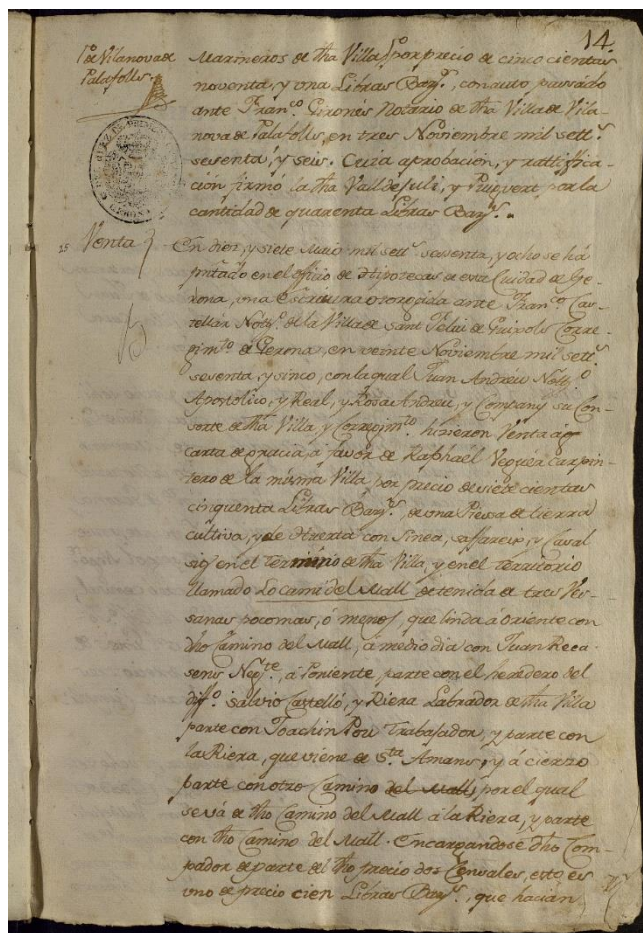 14.
1º de Vilanova de
Palafolls.
Marineros de dha Villa por precio de cinco cientas
noventa, y una Libras Bar.ˢ, con auto passado
ante Fran.co Gironés Notario de dha Villa de Vila-
nova de Palafolls, en tres Noviembre mil sett.s
sesenta, y seis. Cuia aprobación, y rattifica-
ción firmó la dha Valldejuli, y Puigvert, por la
cantidad de quarenta Libras Bar.ˢ
25 Venta
En diez, y siete Maio mil sett.s sesenta, y ocho se há
pntado en el officio de Hipotecas de esta Ciudad de Ge-
rona, una Escritura otorgida ante Fran.co Cas-
tellár Nott.o de la Villa de Sant Feliu de Guixols Corre-
gim.to de Gerona, en veinte Noviembre mil sett.s
sesenta, y sinco, con la qual Juan Andreu Nott.o
Apostolico, y Real, y Rosa Andreu, y Company su Con-
sorte de dha Villa, y Corregim.to hizieron Venta á
carta de gracia, á favor de Raphaél Veguér Carpin-
tero de la misma Villa por precio de siete cientas
cinquenta Libras Bar.ˢ, de una Piessa de tierra
cultiva, y de Huerta con Sinea, saffareix, y Casal
sig en el Termino de dha Villa, y en el Territorio
llamado Lo camí del Mall detenida de tres Ves-
sanas poco mas, ó menos, que linda á Oriente con
dho Camino del Mall, á medio dia con Juan Reca-
sens Neg.te, á Poniente, parte con el heredero del
diff.o Salvio Castelló, y Riera Labrador de dha Villa
parte con Joachin Pou Trabajador, y parte con
la Riera, que viene de S.ta Amans, y á cierzo
parte con otro Camino del Mall, por el qual
se vá de dho Camino del Mall á la Riera, y parte
con dho Camino del Mall. Encargandose dho Com-
pador de parte del dho precio dos Censales, esto és
uno de precio cien Libras Bar.ˢ, que hacian